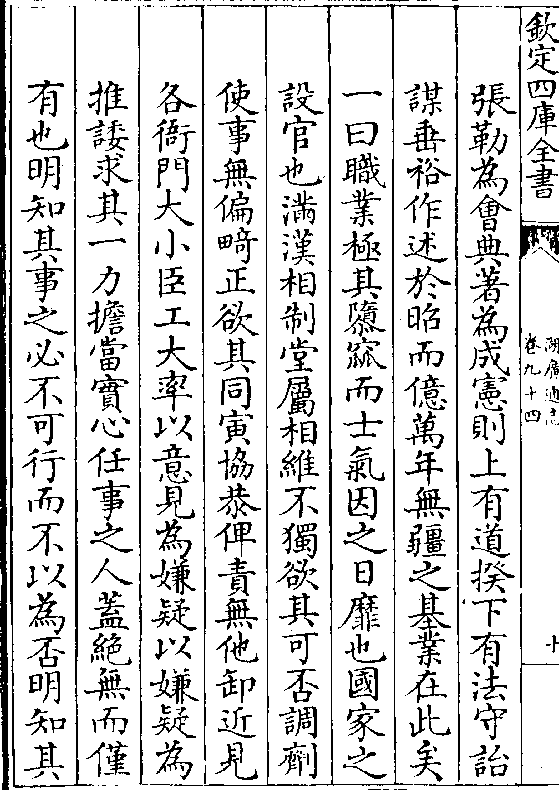 欽定四庫全書
湖廣通志
卷九十四
十
張勒為會典著為成憲則上有道揆下有法守詒
謀垂裕作述於昭而億萬年無疆之基業在此矣
一曰職業極其隳窳而士氣因之日靡也國家之
設官也滿漢相制堂屬相維不獨欲其可否調劑
使事無偏畸正欲其同寅協恭俾責無他卸近見
各衙門大小臣工大率以意見為嫌疑以嫌疑為
推諉求其一力擔當實心任事之人蓋絶無而僅
有也明知其事之必不可行而不以為否明知其